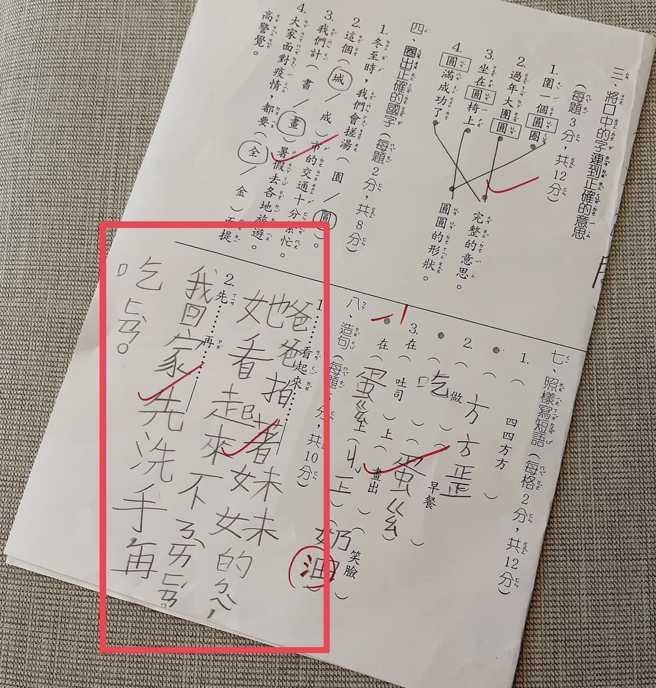 三、將口中的字連到正確的意思
(每題3分,共12分)
1. 圍一個圓圈
2. 過年大團圓
3. 坐在圓椅上
4. 圓滿成功了
完整的意思。
圓圓的形狀。
四、圈出正確的國字(每題2分,共8分)
1. 冬至時,我們會搓湯(園/圓)。
2. 這個(城/成)市的交通十分繁忙。
3. 我們計(書/畫)暑假去各地旅遊。
4. 大家面對疫情,都要(全/金)提
高警覺。
七、照樣寫短語(每格2分,共12分)
1. 四四方方
方方
2. 做 早餐
吃
3. 在 吐司 上 畫出 笑臉
在 蛋ㄍㄠ 上 奶油
八、造句(每題 分,共10分)
1. 看起來
爸爸 著妹妹
她看起來不ㄎㄞ
2. 先 再
我回家先洗手再
吃